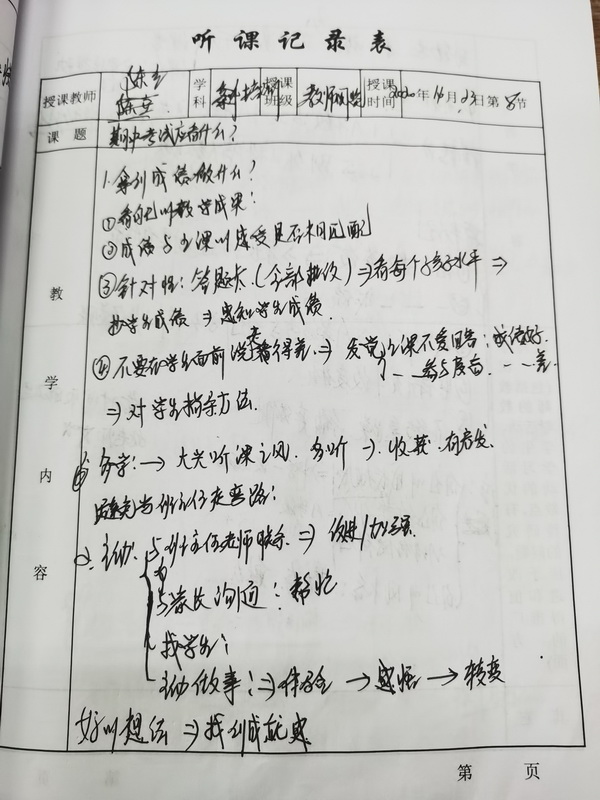 听课记录表
授课教师 陈立 学科 授课班级 教师 授课时间 2020年11月23日第8节
课题 期中考试应看什么?
教学内容
1.拿到成绩做什么?
①看自己的教学成果:
②成绩与上课的感受是否相匹配
③针对性:答题卡(全部批改)⇒看每个孩子水平⇒
抄学生成绩⇒感知学生成绩.
④不要在学生面前说考得差.⇒发觉上课不爱回答:成绩好.
参与度高. 差.
⇒对学生指导方法.
多学:→大兴听课之风.多听→收获.有启发
避免当班主任走弯路:
主动:与班主任老师联系⇒ 加强.
与家长沟通:帮忙
找学生;
主动做事:⇒体会→感悟→转变
好的想法⇒找到成就感
第 页